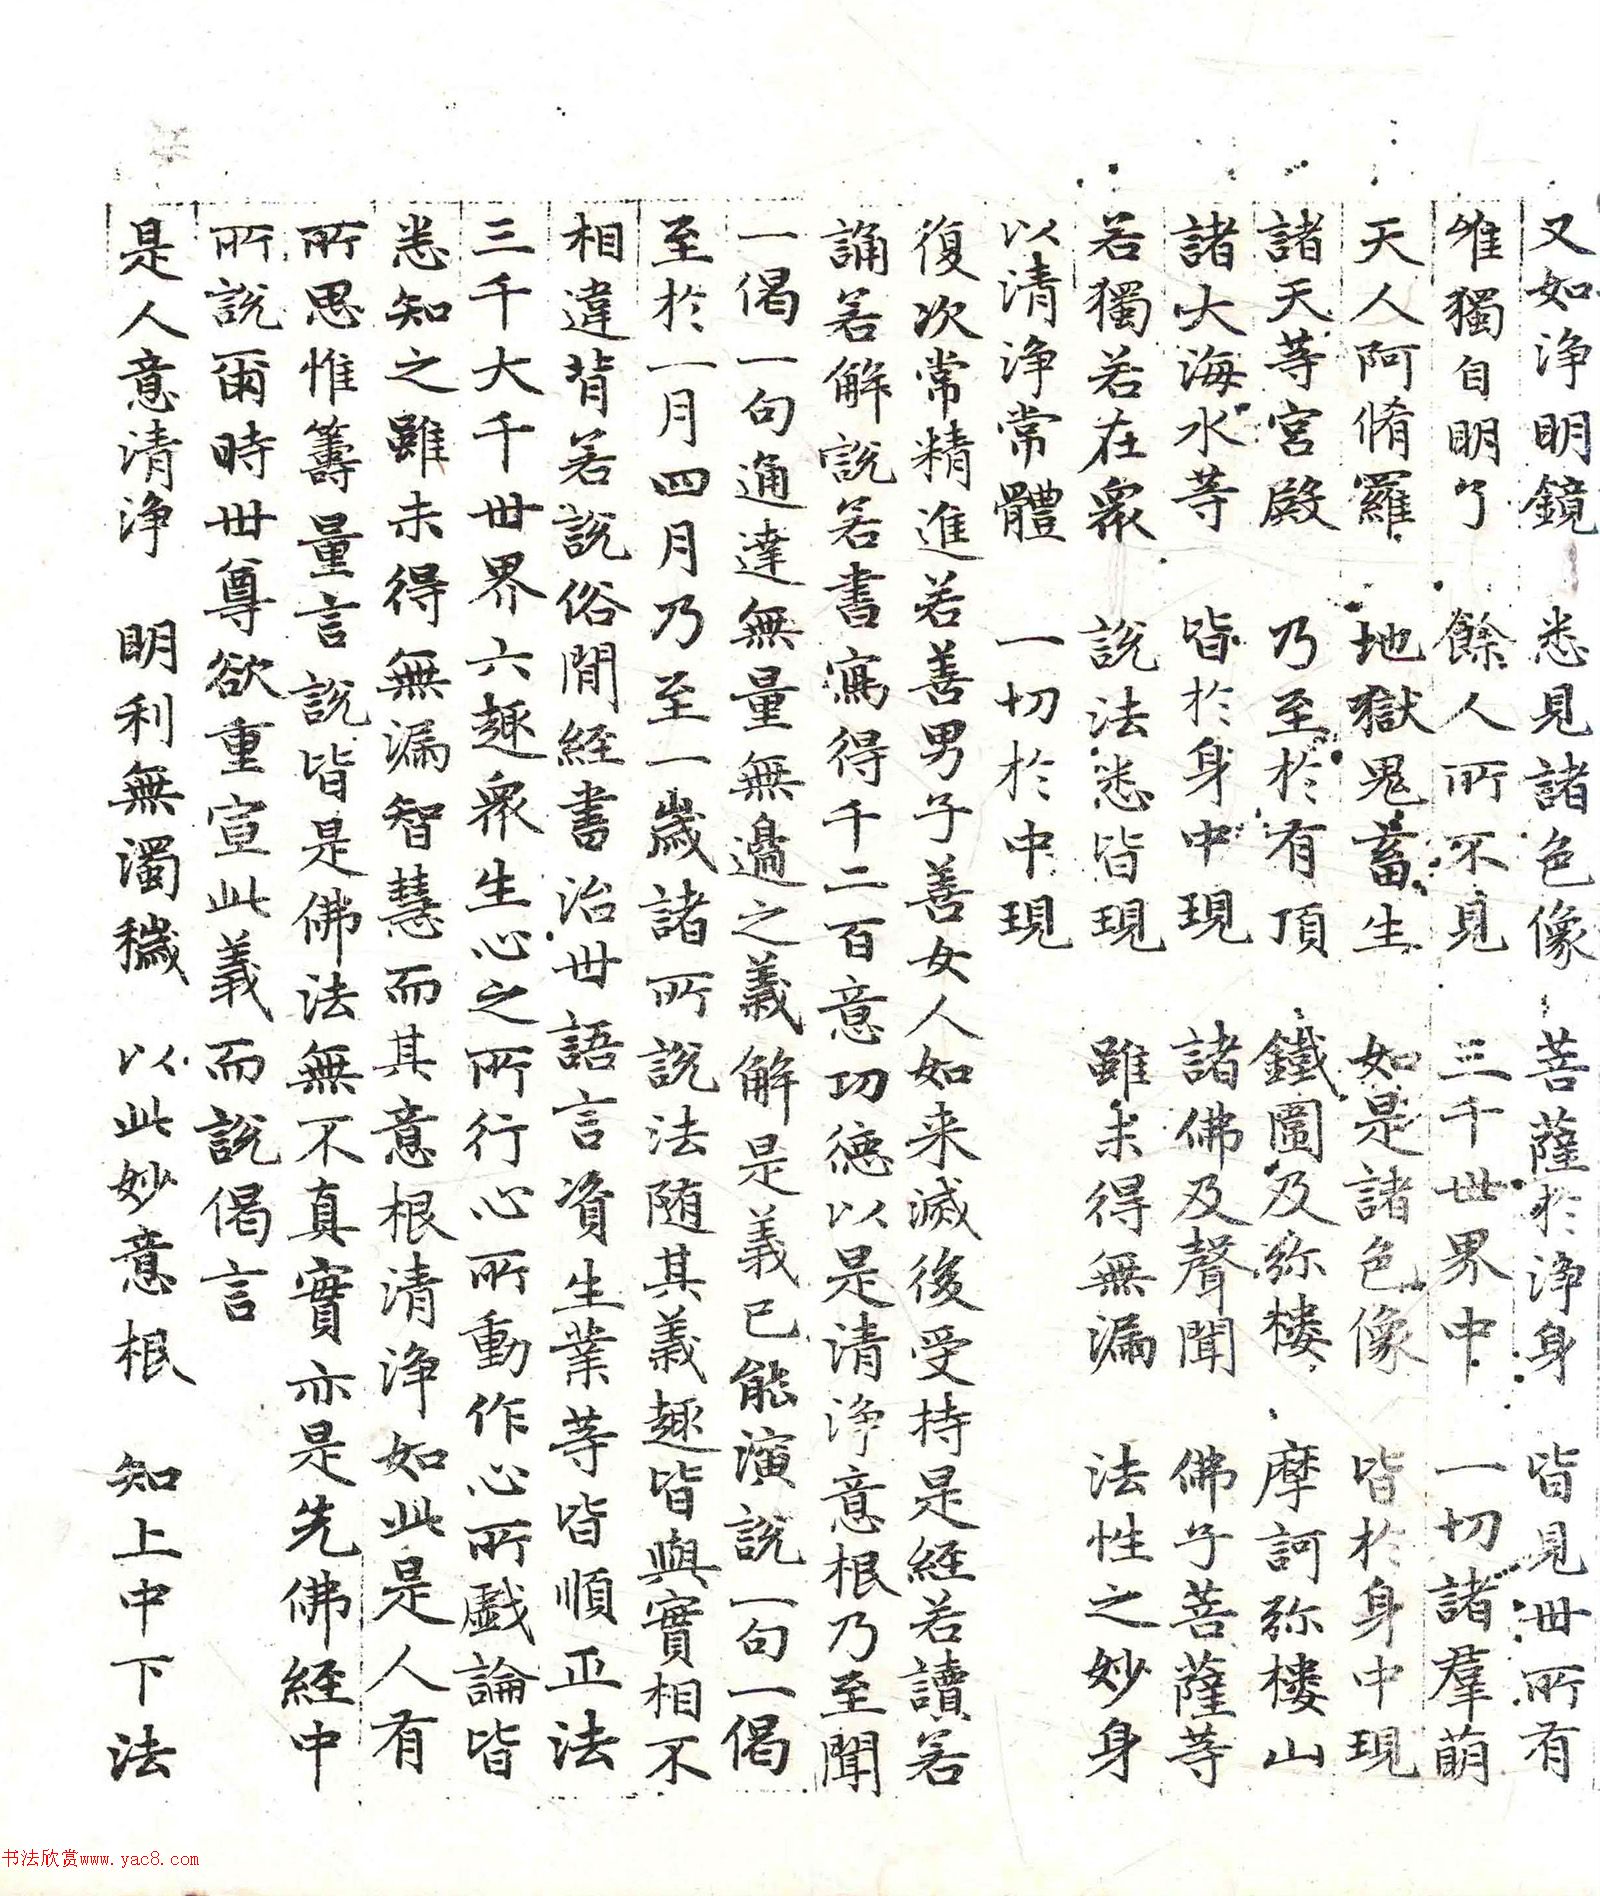 又如淨明鏡 悉見諸色像 菩薩於淨身 皆見世所有
唯獨自明了 餘人所不見 三千世界中 一切諸羣萌
天人阿脩羅 地獄鬼畜生 如是諸色像 皆於身中現
諸天等宮殿 乃至於有頂 鐵圍及弥樓 摩訶弥樓山
諸大海水等 皆於身中現 諸佛及聲聞 佛子菩薩等
若獨若在眾 說法悉皆現 雖未得無漏 法性之妙身
以清淨常體 一切於中現
復次常精進若善男子善女人如来滅後受持是經若讀若
誦若解說若書寫得千二百意功德以是清淨意根乃至聞
一偈一句通達無量無邊之義解是義已能演說一句一偈
至於一月四月乃至一歲諸所說法随其義趣皆與實相不
相違背若說俗間経書治世語言資生業等皆順正法
三千大千世界六趣眾生心之所行心所動作心所戲論皆
悉知之雖未得無漏智慧而其意根清淨如此是人有
所思惟籌量言說皆是佛法無不真實亦是先佛経中
所說爾時世尊欲重宣此義而說偈言
是人意清淨 明利無濁穢 以此妙意根 知上中下法
书法欣赏www.yac8.com